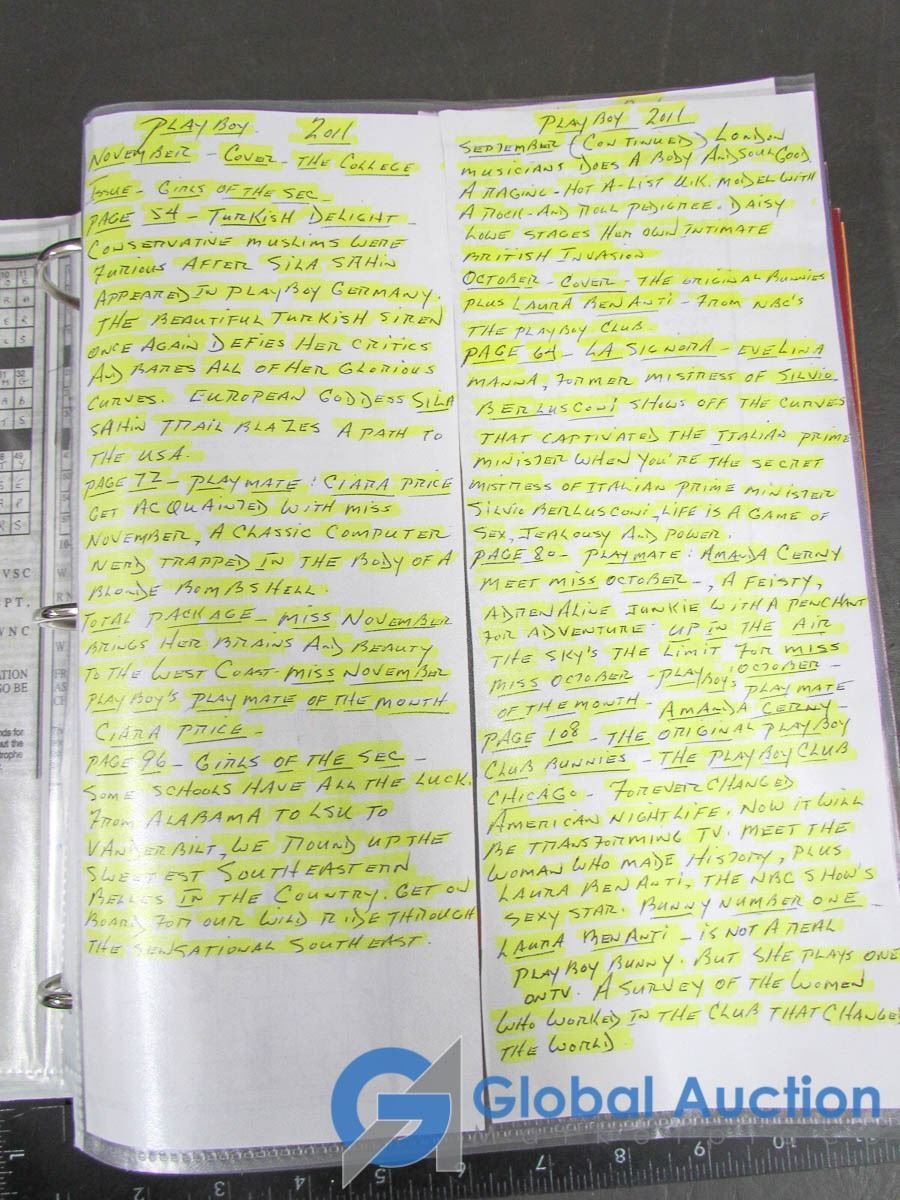 PLAYBOY. 2011
NOVEMBER - COVER - THE COLLEGE
ISSUE - GIRLS OF THE SEC
PAGE 54 - TURKISH DELIGHT
CONSERVATIVE MUSLIMS WERE
FURIOUS AFTER SILA SAHIN
APPEARED IN PLAYBOY GERMANY.
THE BEAUTIFUL TURKISH SIREN
ONCE AGAIN DEFIES HER CRITICS
AND BARES ALL OF HER GLORIOUS
CURVES. EUROPEAN GODDESS SILA
SAHIN TRAIL BLAZES A PATH TO
THE USA.
PAGE 72 - PLAYMATE: CIARA PRICE
GET ACQUAINTED WITH MISS
NOVEMBER, A CLASSIC COMPUTER
NERD TRAPPED IN THE BODY OF A
BLONDE BOMBSHELL.
TOTAL PACKAGE - MISS NOVEMBER
BRINGS HER BRAINS AND BEAUTY
TO THE WEST COAST - MISS NOVEMBER
PLAYBOY'S PLAYMATE OF THE MONTH
CIARA PRICE -
PAGE 96 - GIRLS OF THE SEC -
SOME SCHOOLS HAVE ALL THE LUCK.
FROM ALABAMA TO LSU TO
VANDERBILT, WE ROUND UP THE
SWEETEST SOUTHEASTERN
BELLES IN THE COUNTRY. GET ON
BOARD FOR OUR WILD RIDE THROUGH
THE SENSATIONAL SOUTHEAST.
PLAYBOY 2011
SEPTEMBER (CONTINUED) LONDON
MUSICIANS DOES A BODY AND SOUL GOOD.
A RAGING-HOT A-LIST U.K. MODEL WITH
A ROCK-AND ROLL PEDIGREE. DAISY
LOWE STAGES HER OWN INTIMATE
BRITISH INVASION
OCTOBER - COVER - THE ORIGINAL BUNNIES
PLUS LAURA BENANTI - FROM NBC'S
THE PLAYBOY CLUB
PAGE 64 - LA SIGNORA - EVELINA
MANNA, FORMER MISTRESS OF SILVIO
BERLUSCONI SHOWS OFF THE CURVES
THAT CAPTIVATED THE ITALIAN PRIME
MINISTER WHEN YOU'RE THE SECRET
MISTRESS OF ITALIAN PRIME MINISTER
SILVIO BERLUSCONI, LIFE IS A GAME OF
SEX, JEALOUSY AND POWER.
PAGE 80 - PLAYMATE: AMANDA CERNY
MEET MISS OCTOBER -, A FEISTY,
ADRENALINE JUNKIE WITH A PENCHANT
FOR ADVENTURE. UP IN THE AIR
THE SKY'S THE LIMIT FOR MISS
MISS OCTOBER - PLAYBOYS OCTOBER -
OF THE MONTH - AMANDA CERNY - PLAYMATE
PAGE 108 - THE ORIGINAL PLAYBOY
CLUB BUNNIES - THE PLAYBOY CLUB
CHICAGO - FOREVER CHANGED
AMERICAN NIGHTLIFE. NOW IT WILL
BE TRANSFORMING TV. MEET THE
WOMAN WHO MADE HISTORY, PLUS
LAURA BENANTI, THE NBC SHOW'S
SEXY STAR. BUNNY NUMBER ONE -
LAURA BENANTI - IS NOT A REAL
PLAYBOY BUNNY. BUT SHE PLAYS ONE
ON TV. A SURVEY OF THE WOMEN
WHO WORKED IN THE CLUB THAT CHANGED
THE WORLD.
GA Global Auction